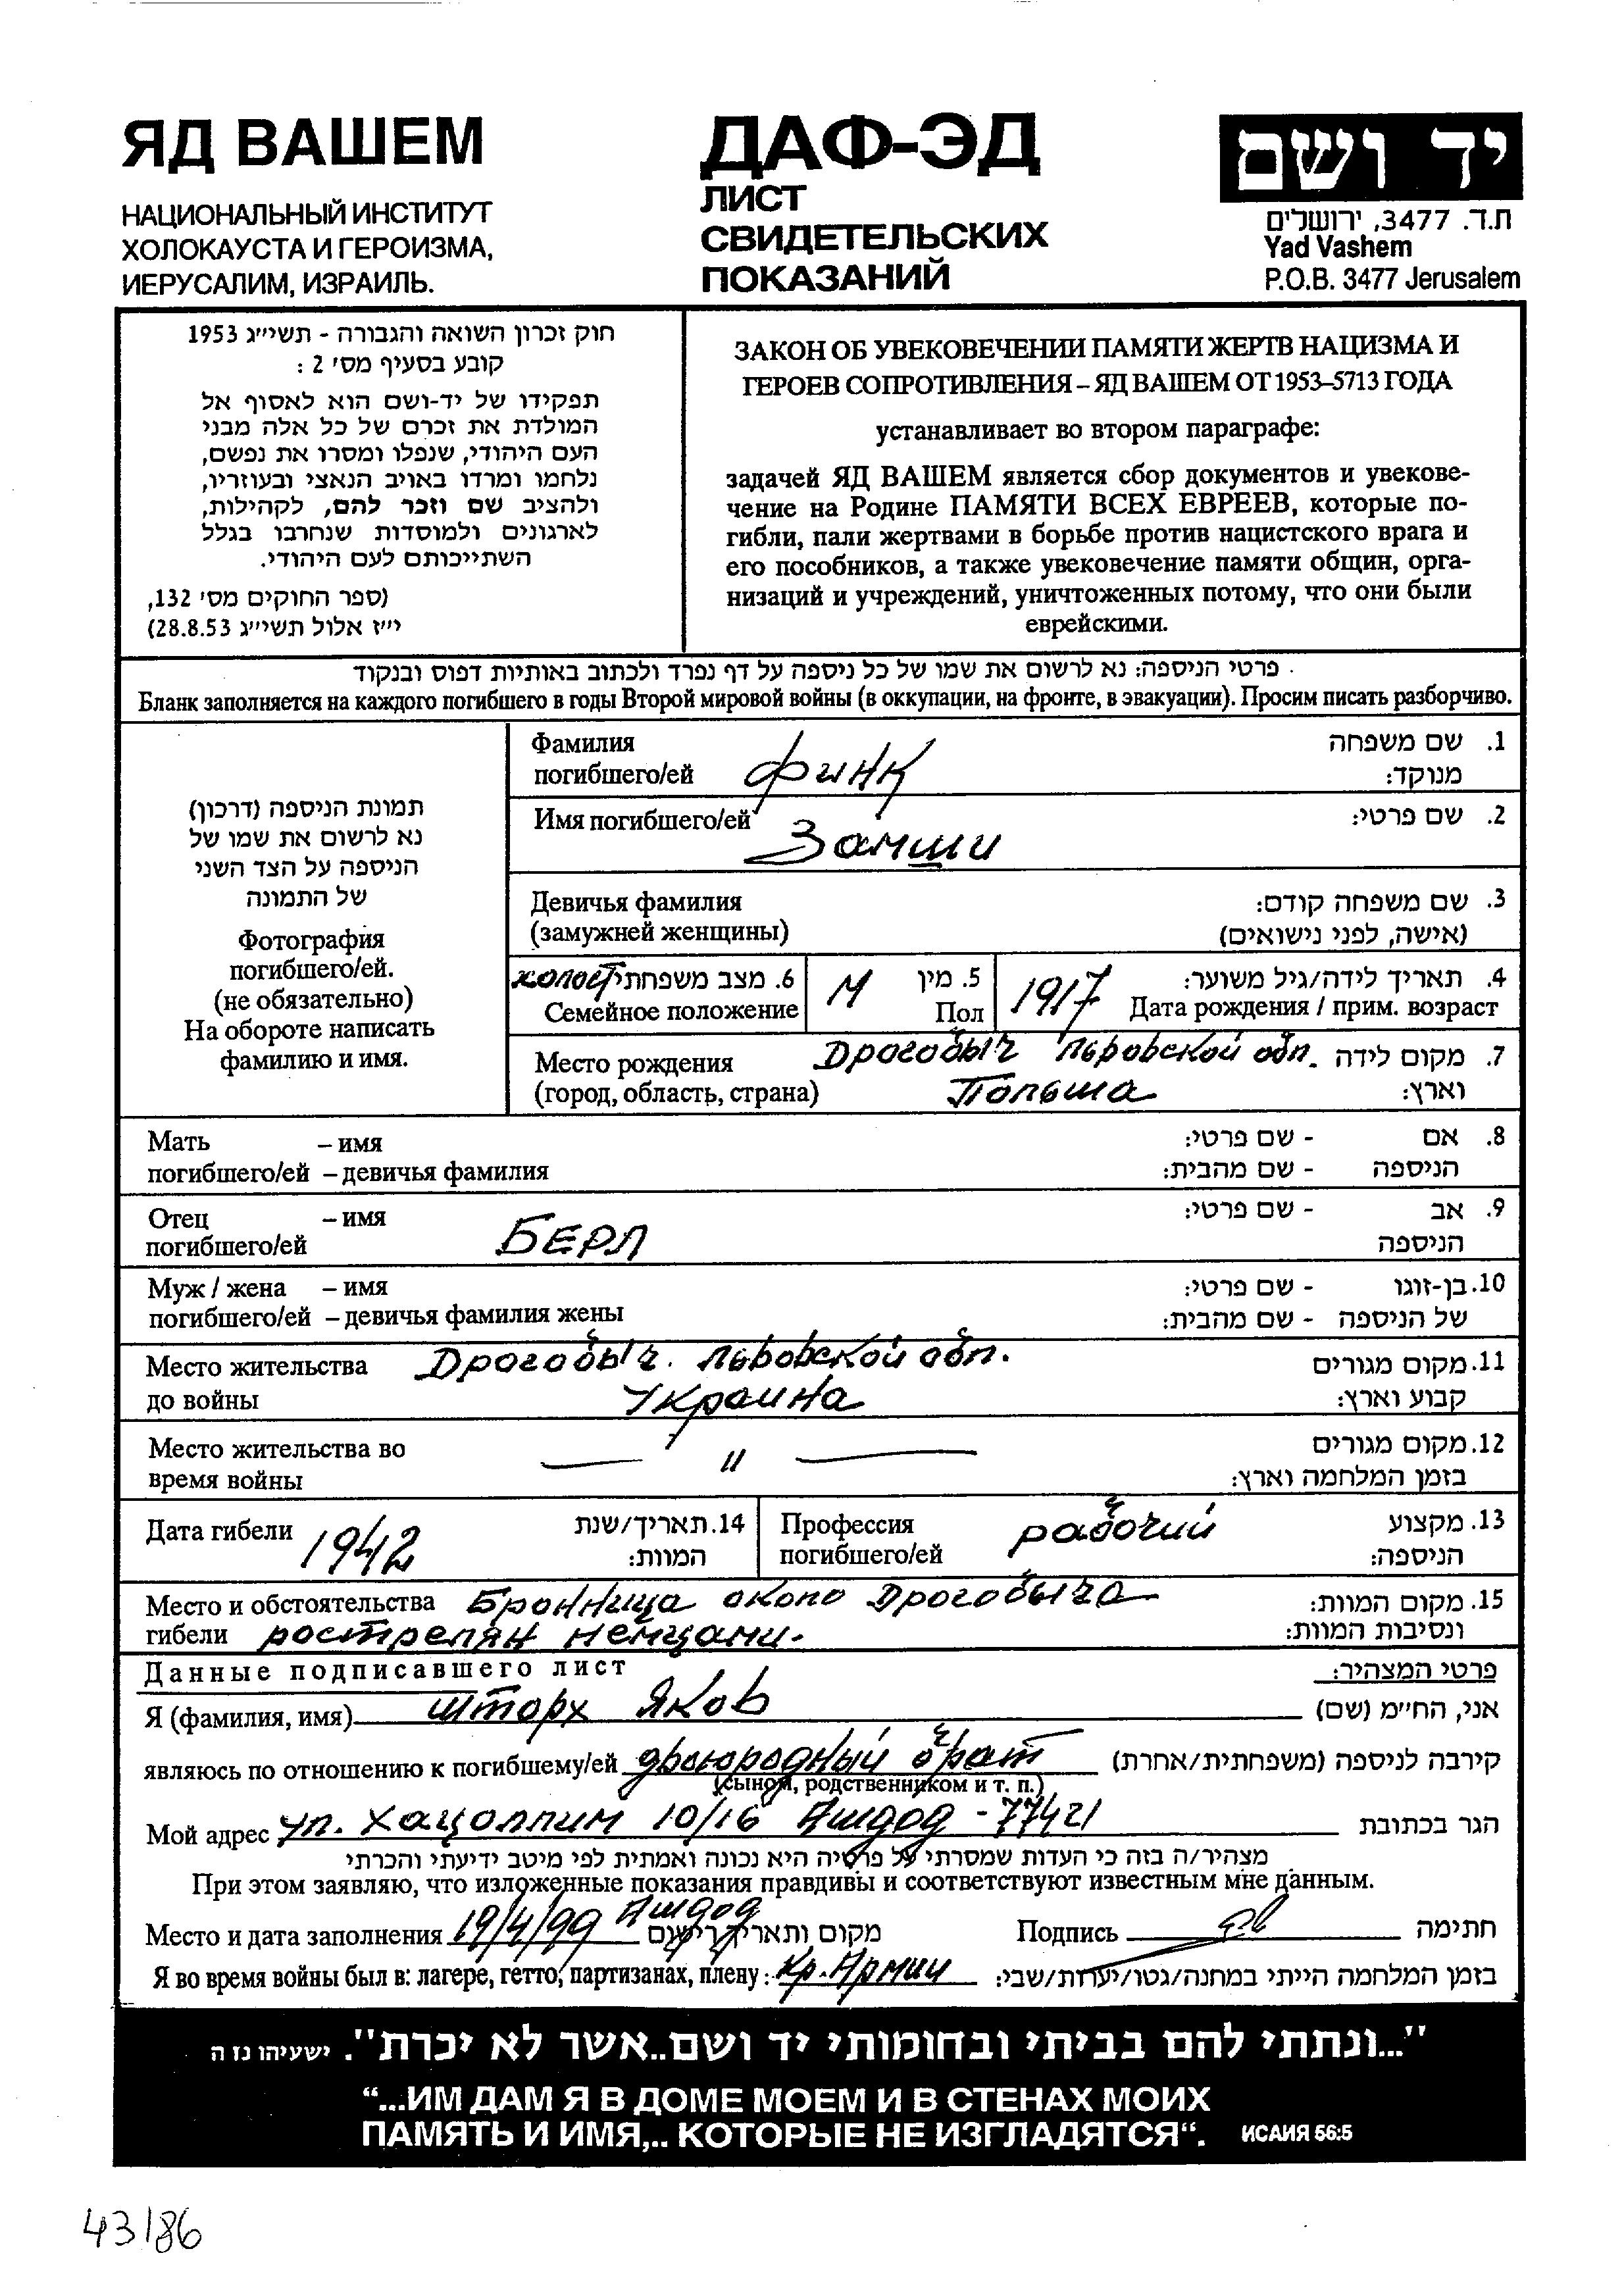 ЯД ВАШЕМ
НАЦИОНАЛЬНЫЙ ИНСТИТУТ
ХОЛОКАУСТА И ГЕРОИЗМА,
ИЕРУСАЛИМ, ИЗРАИЛЬ.
ДАФ-ЭД
ЛИСТ
СВИДЕТЕЛЬСКИХ
ПОКАЗАНИЙ
יד ושם
ת.ד. 3477, ירושלים
Yad Vashem
P.O.B. 3477 Jerusalem
חוק זכרון השואה והגבורה - תשי״ג 1953
קובע בסעיף מס׳ 2 :
תפקידו של יד-ושם הוא לאסוף אל
המולדת את זכרם של כל אלה מבני
העם היהודי, שנפלו ומסרו את נפשם,
נלחמו ומרדו באויב הנאצי ובעוזריו,
ולהציב שם וזכר להם, לקהילות,
לארגונים ולמוסדות שנחרבו בגלל
השתייכותם לעם היהודי.
(ספר החוקים מס׳ 132,
י״ז אלול תשי״ג 28.8.53)
ЗАКОН ОБ УВЕКОВЕЧЕНИИ ПАМЯТИ ЖЕРТВ НАЦИЗМА И
ГЕРОЕВ СОПРОТИВЛЕНИЯ – ЯД ВАШЕМ ОТ 1953–5713 ГОДА
устанавливает во втором параграфе:
задачей ЯД ВАШЕМ является сбор документов и увекове-
чение на Родине ПАМЯТИ ВСЕХ ЕВРЕЕВ, которые по-
гибли, пали жертвами в борьбе против нацистского врага и
его пособников, а также увековечение памяти общин, орга-
низаций и учреждений, уничтоженных потому, что они были
еврейскими.
פרטי הניספה: נא לרשום את שמו של כל ניספה על דף נפרד ולכתוב באותיות דפוס ובנקוד
Бланк заполняется на каждого погибшего в годы Второй мировой войны (в оккупации, на фронте, в эвакуации). Просим писать разборчиво.
תמונת הניספה (דרכון)
נא לרשום את שמו של
הניספה על הצד השני
של התמונה
Фотография
погибшего/ей.
(не обязательно)
На обороте написать
фамилию и имя.
Фамилия 1. שם משפחה
погибшего/ей Финк מנוקד:
Имя погибшего/ей 2. שם פרטי:
Замши
Девичья фамилия 3. שם משפחה קודם:
(замужней женщины) (אישה, לפני נישואים)
холост 6. מצב משפחתי М 5. מין 1917 4. תאריך לידה/גיל משוער:
Семейное положение Пол Дата рождения / прим. возраст
Место рождения Дрогобыч Львовской обл. 7. מקום לידה
(город, область, страна) Польша וארץ:
Мать – имя 8. אם - שם פרטי:
погибшего/ей – девичья фамилия הניספה - שם מהבית:
Отец – имя 9. אב - שם פרטי:
погибшего/ей БЕРЛ הניספה
Муж / жена – имя 10. בן-זוגו - שם פרטי:
погибшего/ей – девичья фамилия жены של הניספה - שם מהבית:
Место жительства Дрогобыч. Львовской обл. 11. מקום מגורים
до войны Украина קבוע וארץ:
Место жительства во — " — 12. מקום מגורים
время войны בזמן המלחמה וארץ:
Дата гибели 1942 14. תאריך/שנת
המוות:
Профессия рабочий 13. מקצוע
погибшего/ей הניספה:
Место и обстоятельства Бронница около Дрогобыча 15. מקום המוות:
гибели рострелян немцами. ונסיבות המוות:
Данные подписавшего лист פרטי המצהיר:
Я (фамилия, имя) Шторх Яков אני, החי״מ (שם)
являюсь по отношению к погибшему/ей двоюродный брат קירבה לניספה (משפחתית/אחרת)
(сыном, родственником и т. п.)
Мой адрес ул. Хацоллим 10/16 Ашдод - 77421 הגר בכתובת
מצהיר/ה בזה כי העדות שמסרתי על פרטיה היא נכונה ואמתית לפי מיטב ידיעתי והכרתי
При этом заявляю, что изложенные показания правдивы и соответствуют известным мне данным.
Место и дата заполнения 19/4/99 Ашдод מקום ותאריך רישום Подпись חתימה
Я во время войны был в: лагере, гетто, партизанах, плену: Кр. Армии בזמן המלחמה הייתי במחנה/גטו/יערות/שבי:
"...ונתתי להם בביתי ובחומותי יד ושם..אשר לא יכרת". ישעיהו נז ה
“...ИМ ДАМ Я В ДОМЕ МОЕМ И В СТЕНАХ МОИХ
ПАМЯТЬ И ИМЯ,.. КОТОРЫЕ НЕ ИЗГЛАДЯТСЯ“. ИСАИЯ 56:5
43/86